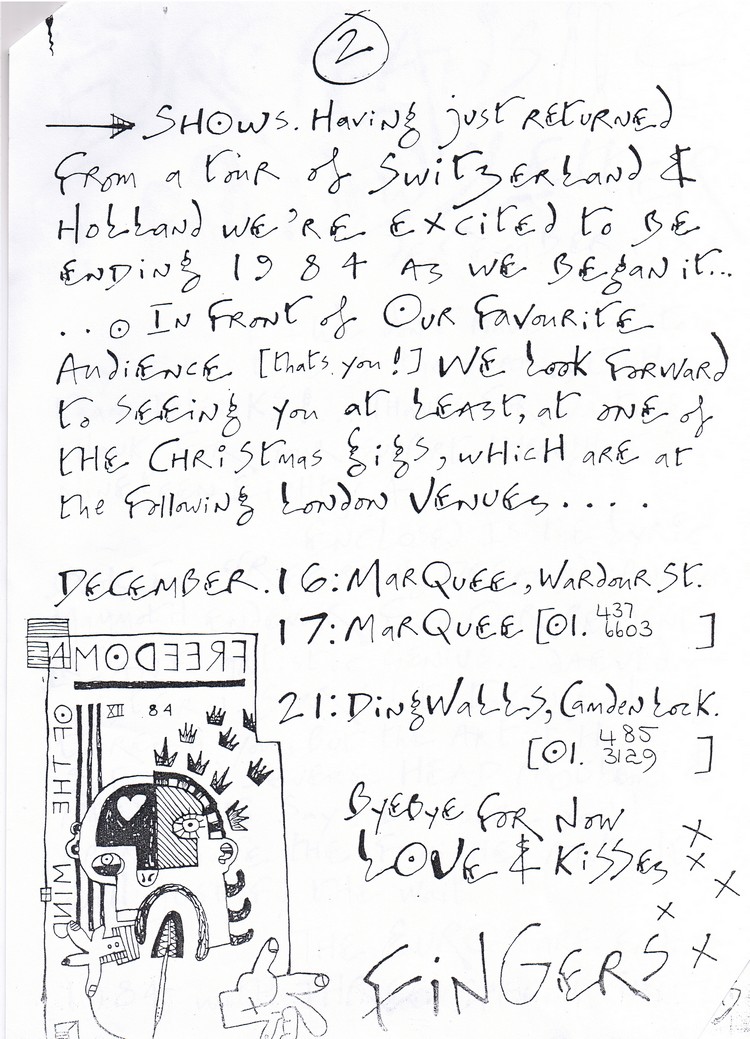 2
SHOWS. Having just RETURNED
From a tour of Switzerland &
Holland we're excited to be
ending 1984 as we began it...
... In front of Our Favourite
Audience [thats you!] We look forward
to seeing you at least, at one of
the Christmas gigs, which are at
the following London Venues....
DECEMBER. 16: MarQuee, Wardour St.
17: MarQuee [01. 437 6603 ]
21: DingWalls, Camden Lock.
[01. 485 3129 ]
FREEDOM
XII 84
OF THE MIND
ByeBye For Now
LOVE & Kisses x x x
x x
FiNGERS